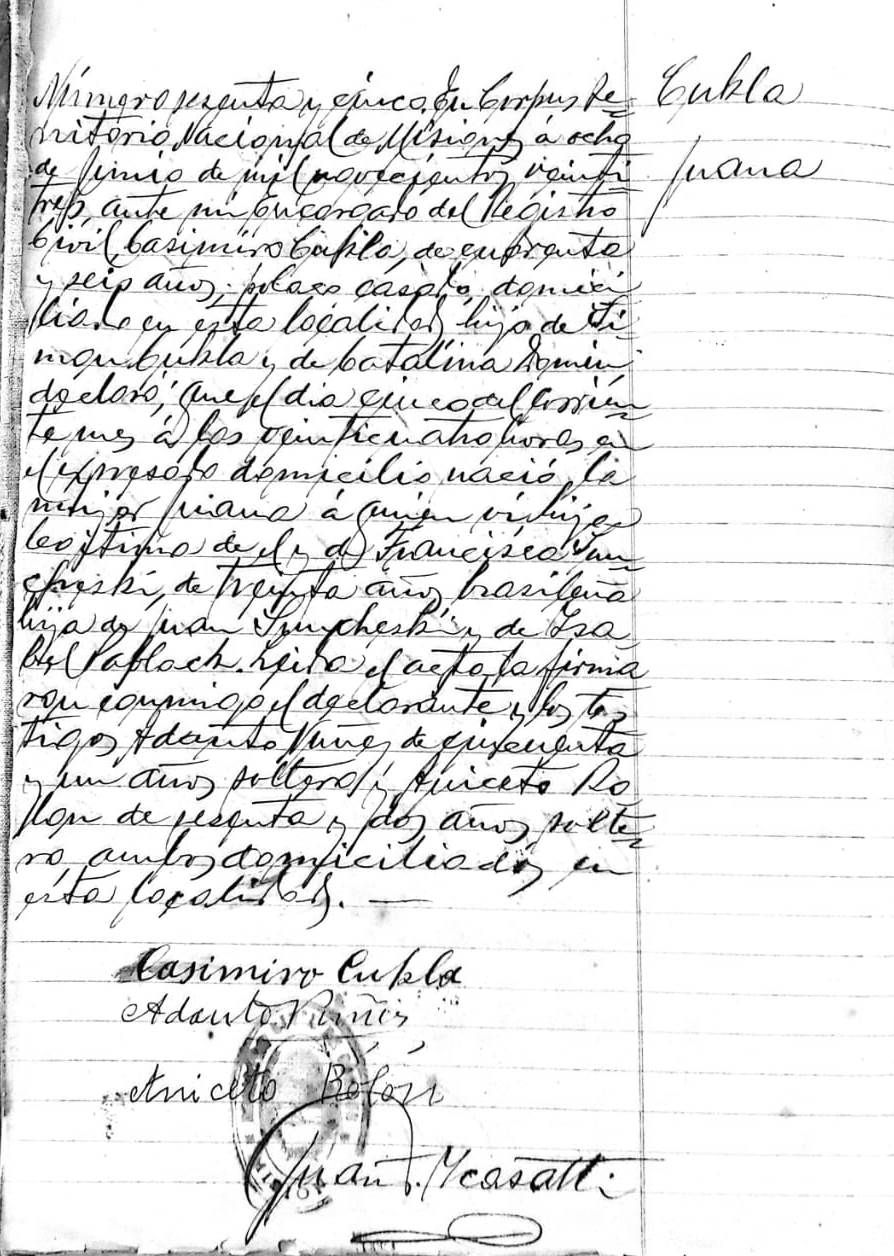 Cukla
Juana
Número sesenta y cinco. En Corpus Te=
rritorio Nacional de Misiones á ocho
de Junio de mil novecientos veinti=
tres, ante mi Encargado del Registro
Civil, Casimiro Cukla, de cuarenta
y seis años, polaco casado domici
liado en esta localidad hijo de Si
mon Cukla y de Catalina
declaró; Que el dia cinco del corrien=
te mes á las veinticuatro horas en
el expresado domicilio nació la
mujer Juana á quien vi hija
legitima de el y de Francisca
de treinta años brasileña
hija de Juan y de Isa
bel Leida el acta la firma
ron conmigo el declarante y los tes
tigos Adanto Nuñes de cincuenta
y un años soltero y Aniceto Ro
lon de sesenta y dos años solte=
ro, ambos domiciliados en
esta localidad. —
Casimiro Cukla
Adanto Nuñes
Aniceto Rólón
Juan